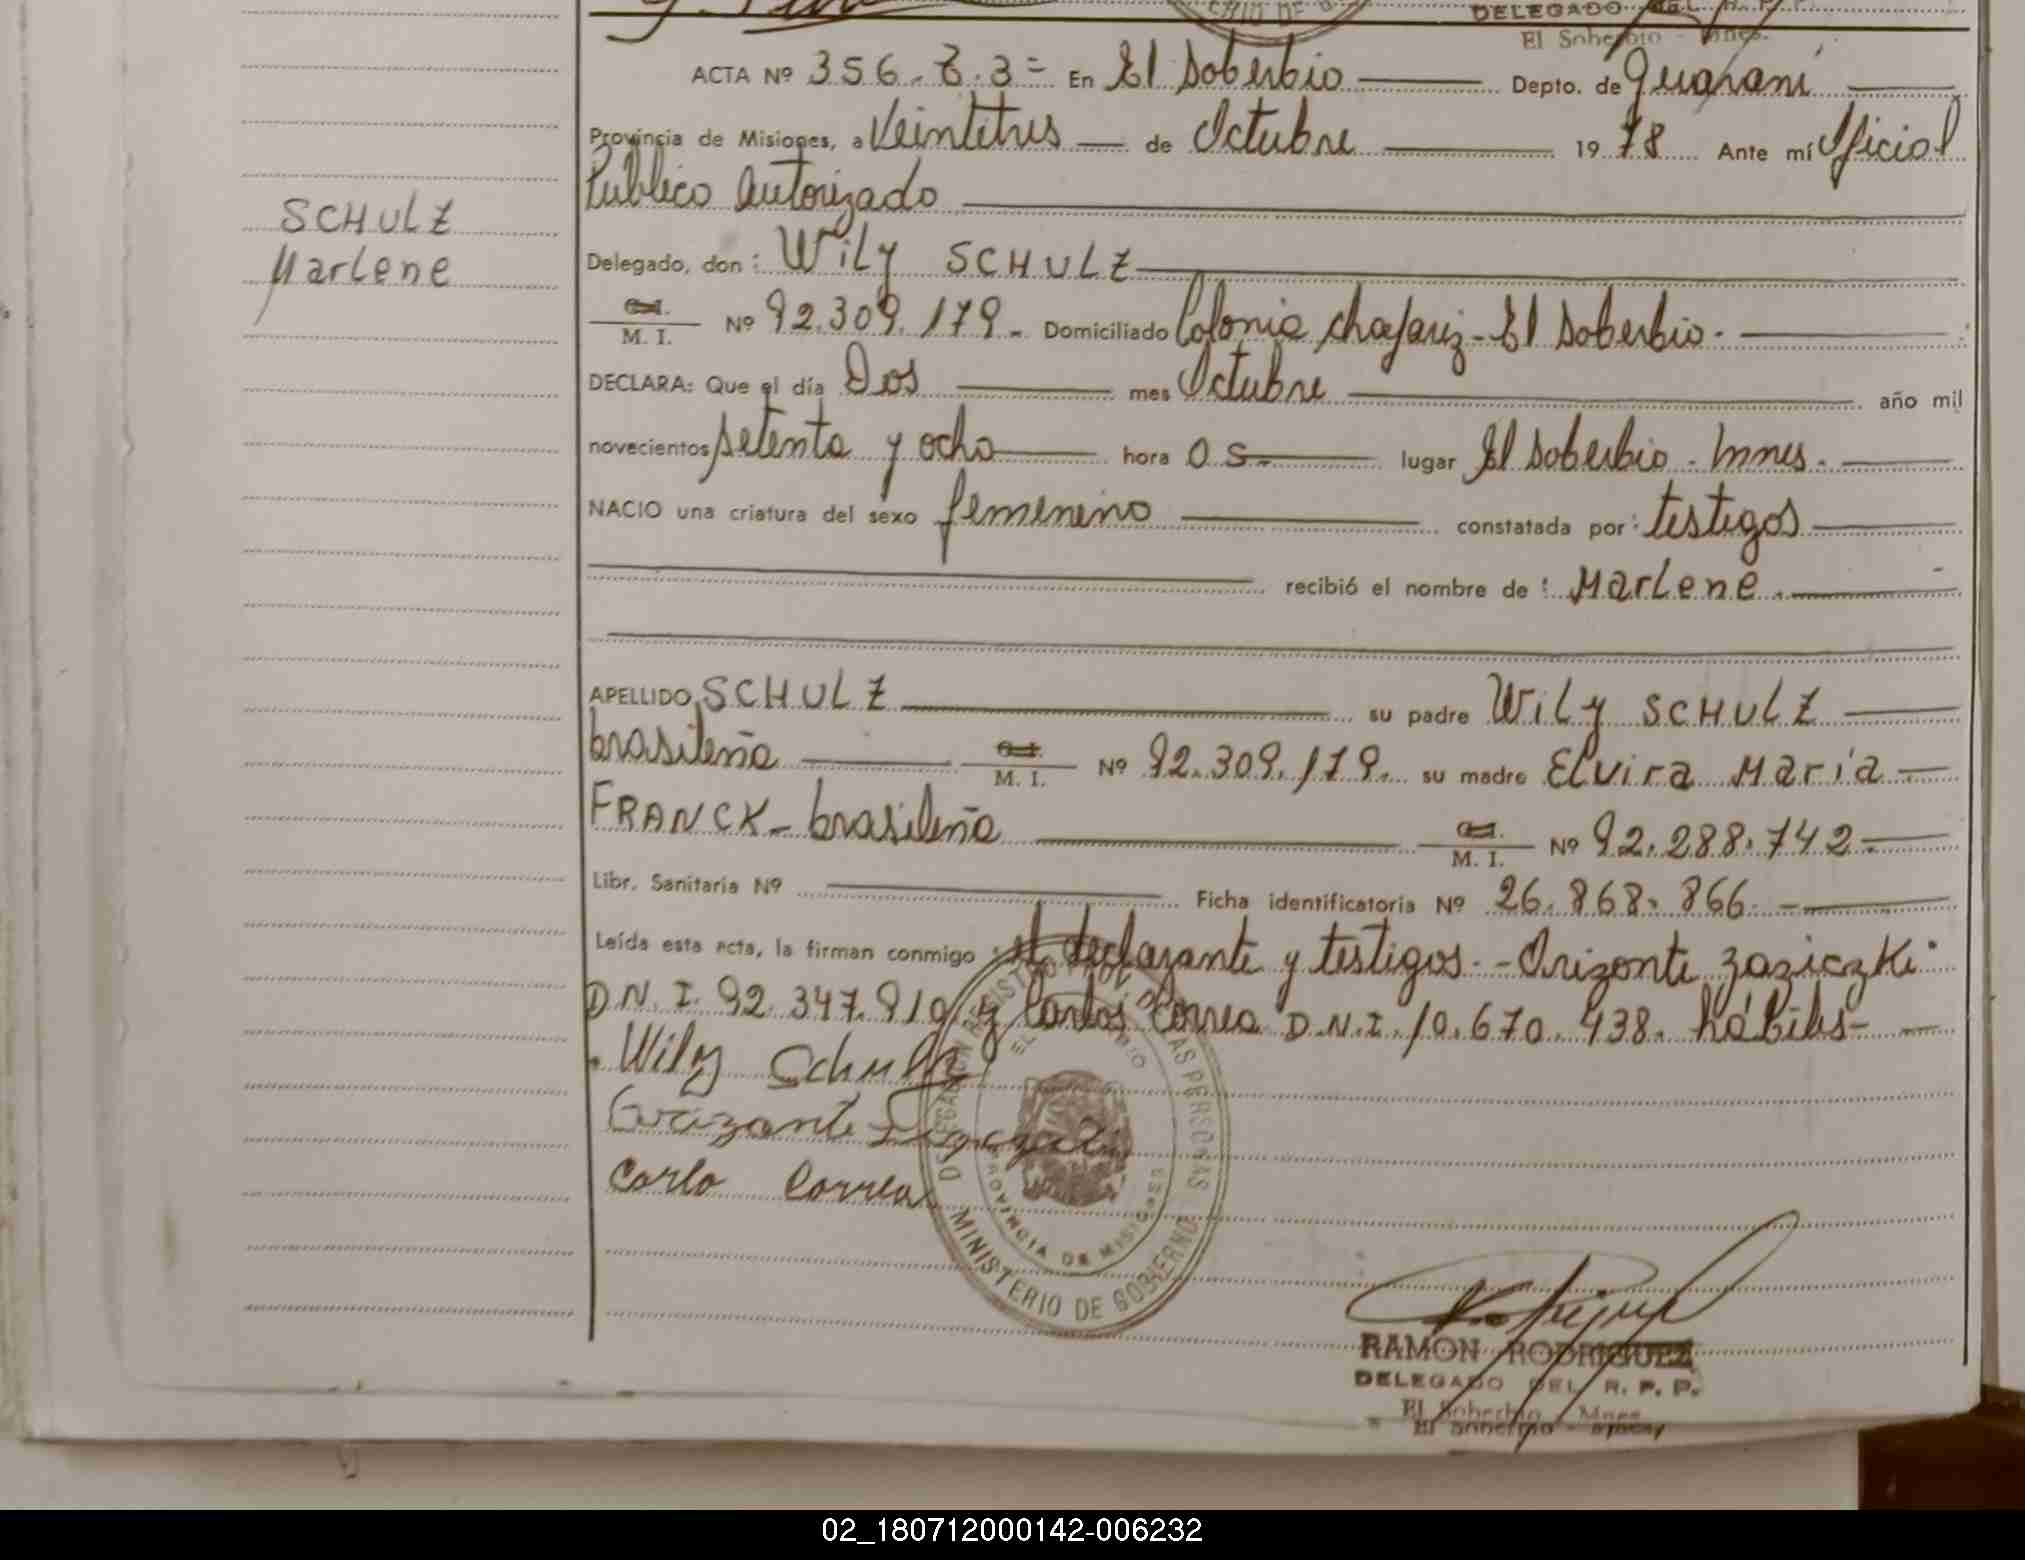 DELEGADO DEL R. P. P.
El Soberbio - Mnes.
ACTA Nº 356. T. 3= En El Soberbio Depto. de Guarani
Provincia de Misiones, a Veintitres de Octubre 19 78 Ante mí Oficial
Publico Autorizado
SCHULZ
Marlene
Delegado, don: Wily SCHULZ
M. I. Nº 92.309.179.- Domiciliado Colonia Chafariz - El Soberbio.
DECLARA: Que el día Dos mes Octubre año mil
novecientos setenta y ocho hora 05.- lugar El Soberbio - Mnes.
NACIO una criatura del sexo femenino constatada por: testigos
recibió el nombre de: Marlene.
APELLIDO SCHULZ su padre Wily SCHULZ
brasileña M. I. Nº 92.309.179. su madre Elvira Maria
FRANCK - brasileña M. I. Nº 92.288.742-
Libr. Sanitaria Nº Ficha identificatoria Nº 26.868.866 -
Leída esta acta, la firman conmigo: el declarante y testigos.- Orizonte Zaziczki
D.N.I. 92.347.910 y Carlos Correa D.N.I. 10.670.438. hábiles-
Wily Schulz
Carlo Correa
DELEGACION REGISTRO PROV. DE LAS PERSONAS
EL SOBERBIO
PROVINCIA DE MISIONES
MINISTERIO DE GOBIERNO
RAMON RODRIGUEZ
DELEGADO DEL R. P. P.
El Soberbio - Mnes.
02_180712000142-006232